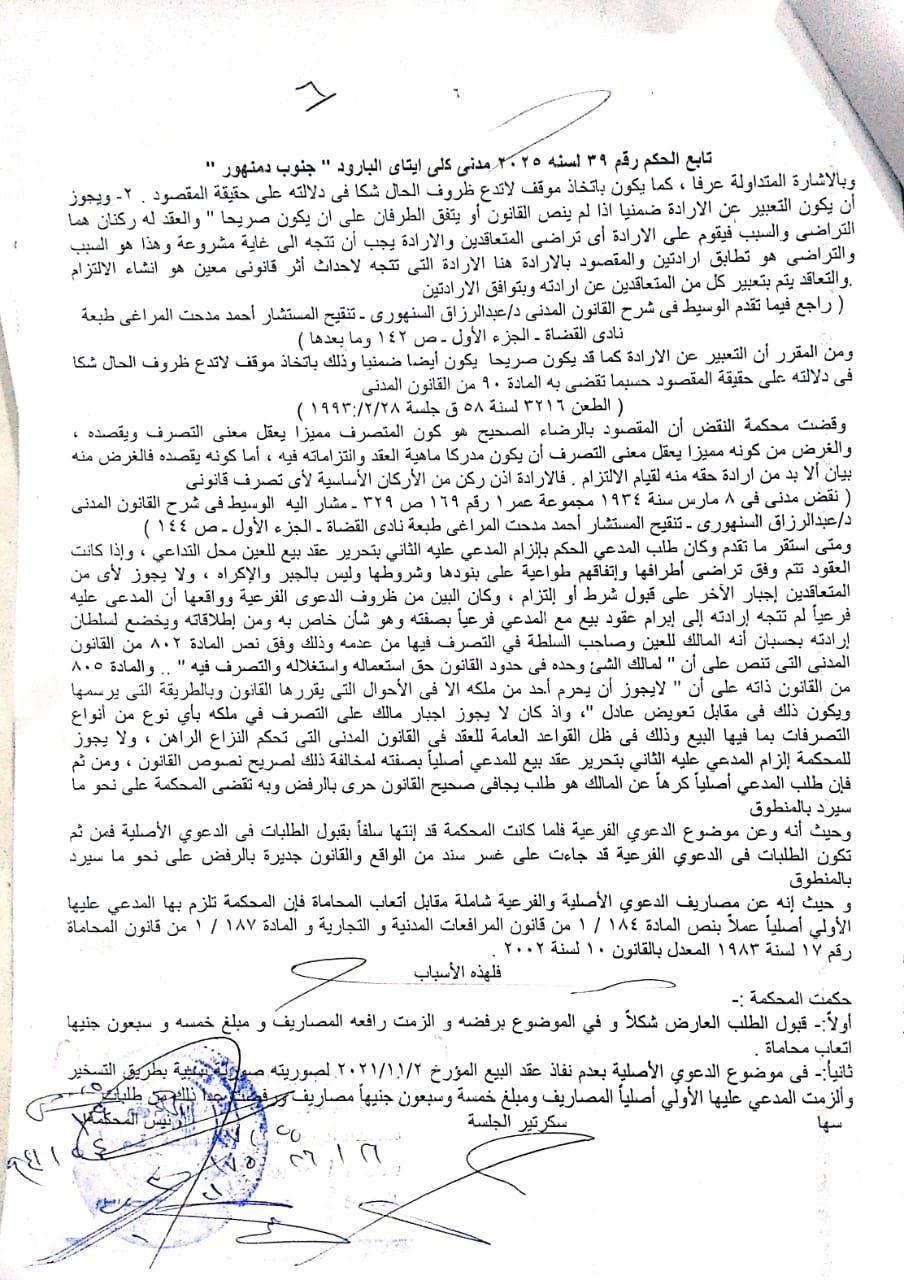 ٦
٦
تابع الحكم رقم ٣٩ لسنه ٢٠٢٥ مدنى كلى ايتاى البارود " جنوب دمنهور "
وبالاشارة المتداولة عرفا ، كما يكون باتخاذ موقف لاتدع ظروف الحال شكا فى دلالته على حقيقة المقصود . ٢- ويجوز
أن يكون التعبير عن الارادة ضمنيا اذا لم ينص القانون أو يتفق الطرفان على ان يكون صريحا " والعقد له ركنان هما
التراضى والسبب فيقوم على الارادة أى تراضى المتعاقدين والارادة يجب أن تتجه الى غاية مشروعة وهذا هو السبب
والتراضى هو تطابق ارادتين والمقصود بالارادة هنا الارادة التى تتجه لاحداث أثر قانونى معين هو انشاء الالتزام
.والتعاقد يتم بتعبير كل من المتعاقدين عن ارادته وبتوافق الارادتين
( راجع فيما تقدم الوسيط فى شرح القانون المدنى د/عبدالرزاق السنهورى ـ تنقيح المستشار أحمد مدحت المراغى طبعة
نادى القضاة ـ الجزء الأول ـ ص ١٤٢ وما بعدها )
ومن المقرر أن التعبير عن الارادة كما قد يكون صريحا يكون أيضا ضمنيا وذلك باتخاذ موقف لاتدع ظروف الحال شكا
فى دلالته على حقيقة المقصود حسبما تقضى به المادة ٩٠ من القانون المدنى
( الطعن ٣٢١٦ لسنة ٥٨ ق جلسة ١٩٩٣/٢/٢٨: )
وقضت محكمة النقض أن المقصود بالرضاء الصحيح هو كون المتصرف مميزا يعقل معنى التصرف ويقصده ،
والغرض من كونه مميزا يعقل معنى التصرف أن يكون مدركا ماهية العقد والتزاماته فيه ، أما كونه يقصده فالغرض منه
بيان ألا بد من ارادة حقه منه لقيام الالتزام . فالارادة اذن ركن من الأركان الأساسية لأى تصرف قانونى
( نقض مدنى فى ٨ مارس سنة ١٩٣٤ مجموعة عمر١ رقم ١٦٩ ص ٣٢٩ ـ مشار اليه الوسيط فى شرح القانون المدنى
د/عبدالرزاق السنهورى ـ تنقيح المستشار أحمد مدحت المراغى طبعة نادى القضاة ـ الجزء الأول ـ ص ١٤٤ )
ومتى استقر ما تقدم وكان طلب المدعي الحكم بإلزام المدعي عليه الثاني بتحرير عقد بيع للعين محل التداعي ، وإذا كانت
العقود تتم وفق تراضى أطرافها وإتفاقهم طواعية على بنودها وشروطها وليس بالجبر والإكراه ، ولا يجوز لأى من
المتعاقدين إجبار الآخر على قبول شرط أو إلتزام ، وكان البين من ظروف الدعوى الفرعية وواقعها أن المدعى عليه
فرعياً لم تتجه إرادته إلى إبرام عقود بيع مع المدعي فرعياً بصفته وهو شأن خاص به ومن إطلاقاته ويخضع لسلطان
إرادته بحسبان أنه المالك للعين وصاحب السلطة في التصرف فيها من عدمه وذلك وفق نص المادة ٨٠٢ من القانون
المدنى التى تنص على أن " لمالك الشئ وحده فى حدود القانون حق استعماله واستغلاله والتصرف فيه " .. والمادة ٨٠٥
من القانون ذاته على أن " لايجوز أن يحرم أحد من ملكه الا فى الأحوال التى يقررها القانون وبالطريقة التى يرسمها
ويكون ذلك فى مقابل تعويض عادل "، واذ كان لا يجوز اجبار مالك على التصرف في ملكه بأي نوع من أنواع
التصرفات بما فيها البيع وذلك فى ظل القواعد العامة للعقد فى القانون المدنى التى تحكم النزاع الراهن ، ولا يجوز
للمحكمة إلزام المدعي عليه الثاني بتحرير عقد بيع للمدعي أصلياً بصفته لمخالفة ذلك لصريح نصوص القانون ، ومن ثم
فإن طلب المدعي أصلياً كرهاً عن المالك هو طلب يجافى صحيح القانون حرى بالرفض وبه تقضى المحكمة على نحو ما
سيرد بالمنطوق
وحيث أنه وعن موضوع الدعوي الفرعية فلما كانت المحكمة قد إنتها سلفاً بقبول الطلبات فى الدعوي الأصلية فمن ثم
تكون الطلبات فى الدعوي الفرعية قد جاءت على غسر سند من الواقع والقانون جديرة بالرفض على نحو ما سيرد
بالمنطوق
و حيث إنه عن مصاريف الدعوي الأصلية والفرعية شاملة مقابل أتعاب المحاماة فإن المحكمة تلزم بها المدعي عليها
الأولي أصلياً عملاً بنص المادة ١٨٤ / ١ من قانون المرافعات المدنية و التجارية و المادة ١٨٧ / ١ من قانون المحاماة
رقم ١٧ لسنة ١٩٨٣ المعدل بالقانون ١٠ لسنة ٢٠٠٢ .
فلهذه الأسباب
حكمت المحكمة :-
أولاً:- قبول الطلب العارض شكلاً و في الموضوع برفضه و الزمت رافعه المصاريف و مبلغ خمسه و سبعون جنيها
اتعاب محاماة .
ثانياً:- فى موضوع الدعوي الأصلية بعدم نفاذ عقد البيع المؤرخ ٢٠٢١/١١/٢ لصوريته صورية نسبية بطريق التسخير
وألزمت المدعي عليها الأولي أصلياً المصاريف ومبلغ خمسة وسبعون جنيهاً مصاريف ورفضت عدا ذلك من طلبات
سها سكرتير الجلسة رئيس المحكمة